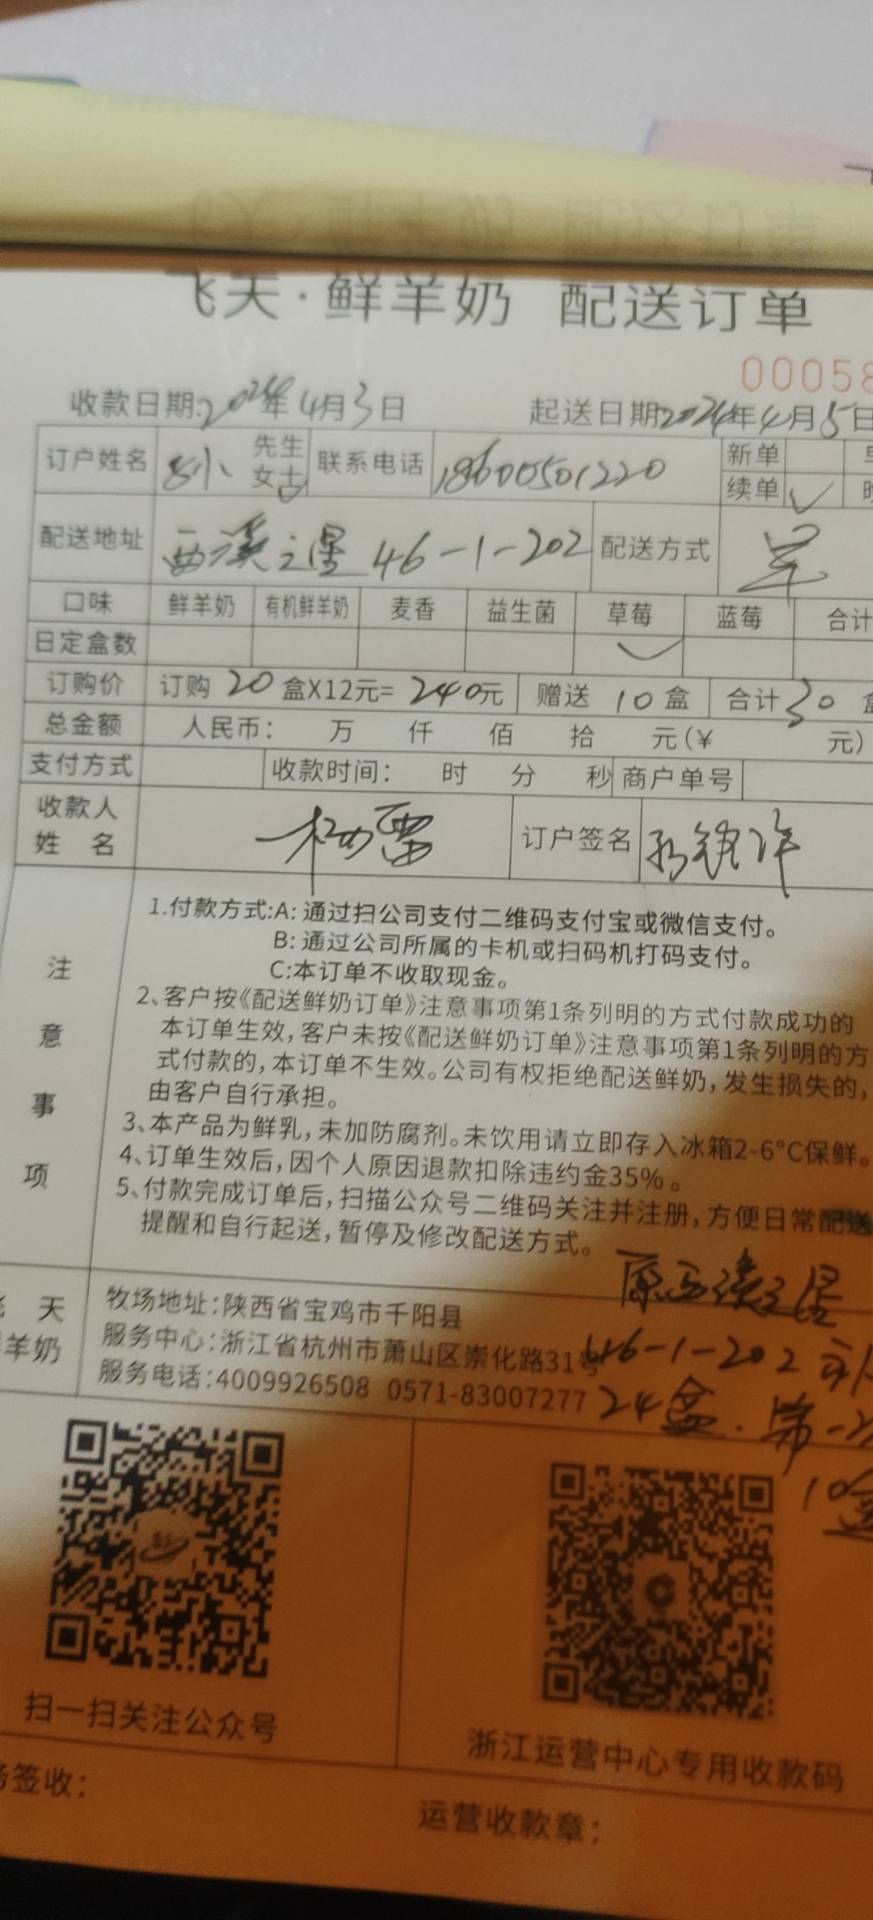 飞天·鲜羊奶 配送订单
00058
收款日期:2024年4月3日 起送日期2024年4月5日
订户姓名 先生 女士 联系电话 18600501220 新单 续单 ✓
配送地址 西溪之星 46-1-202 配送方式
口味 鲜羊奶 有机鲜羊奶 麦香 益生菌 草莓 蓝莓 合计
日定盒数 ✓
订购价 订购 20 盒X12元= 240元 赠送 10 盒 合计 30 盒
总金额 人民币： 万 仟 佰 拾 元(¥ 元)
支付方式 收款时间： 时 分 秒 商户单号
收款人
姓 名 订户签名
注意事项
1.付款方式:A: 通过扫公司支付二维码支付宝或微信支付。
B: 通过公司所属的卡机或扫码机打码支付。
C:本订单不收取现金。
2、客户按《配送鲜奶订单》注意事项第1条列明的方式付款成功的
本订单生效,客户未按《配送鲜奶订单》注意事项第1条列明的方
式付款的,本订单不生效。公司有权拒绝配送鲜奶,发生损失的,
由客户自行承担。
3、本产品为鲜乳,未加防腐剂。未饮用请立即存入冰箱2-6°C保鲜。
4、订单生效后,因个人原因退款扣除违约金35%。
5、付款完成订单后,扫描公众号二维码关注并注册,方便日常配送
提醒和自行起送,暂停及修改配送方式。
原西溪之星
46-1-202
24盒.第一次
10盒
天
羊奶
牧场地址:陕西省宝鸡市千阳县
服务中心:浙江省杭州市萧山区崇化路31号
服务电话:4009926508 0571-83007277
扫一扫关注公众号
浙江运营中心专用收款码
签收:
运营收款章: